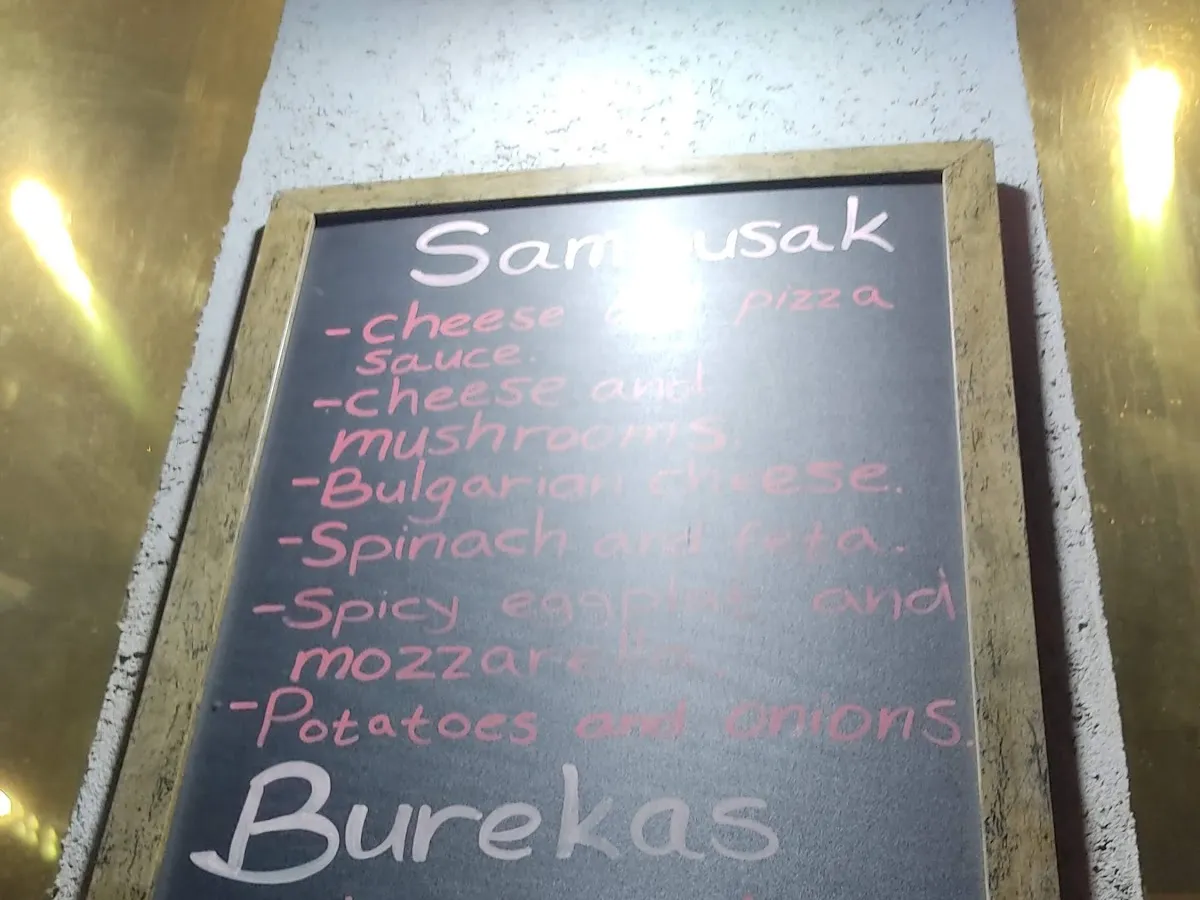 Sambusak
-cheese and pizza
sauce.
-cheese and
mushrooms.
-Bulgarian cheese.
-Spinach and feta.
-Spicy eggplant and
mozzarella.
-Potatoes and onions.
Burekas